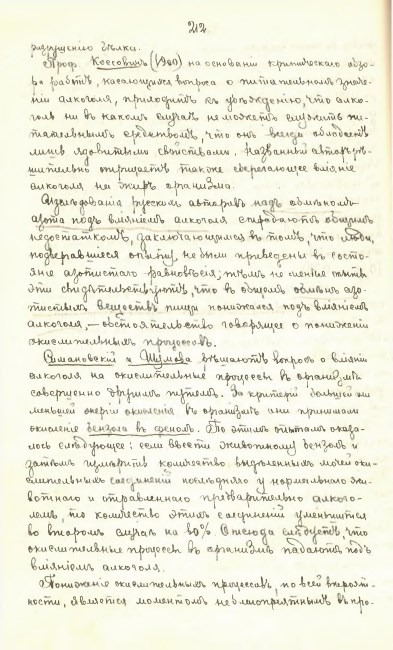 212
разрушенію бѣлка.
Проф. Коссовичъ (1900) на основаніи критическаго обзо-
ра работъ, касающихся вопроса о питательномъ значе-
ніи алкоголя, приходитъ къ убѣжденію, что алко-
голь ни въ какомъ случаѣ не можетъ служить пи-
тательнымъ средствомъ, что онъ всегда обладаетъ
лишь ядовитыми свойствами. Названный авторъ рѣ-
шительно отрицаетъ также сберегающее вліяніе
алкоголя на жиръ организма.
Изслѣдованія русскихъ авторовъ надъ обмѣномъ
азота подъ вліяніемъ алкоголя страдаютъ общимъ
недостаткомъ, заключающимся въ томъ, что люди,
подвергавшіеся опыту, не были приведены въ состо-
яніе азотистаго равновѣсія; тѣмъ не менѣе опыты
эти свидѣтельствуютъ, что въ общемъ обмѣнъ азо-
тистыхъ веществъ пищи понижался подъ вліяніемъ
алкоголя, — обстоятельство говорящее о пониженіи
окислительныхъ процессовъ.
Симановскій и Шумова рѣшаютъ вопросъ о вліяніи
алкоголя на окислительные процессы въ организмѣ
совершенно другимъ путемъ. За критерій большей или
меньшей энергіи окисленія въ организмѣ они принимали
окисленіе бензола въ фенолъ. По этимъ опытамъ оказа-
лось слѣдующее: если ввести животному бензолъ и
затѣмъ измѣрить количество выдѣленныхъ мочей оки-
слительныхъ соединеній послѣдняго у нормальнаго жи-
вотнаго и отравленнаго предварительно алкого-
лемъ, то количество этихъ соединеній уменьшится
во второмъ случаѣ на 60% Отсюда слѣдуетъ, что
окислительные процессы въ организмѣ падаютъ подъ
вліяніемъ алкоголя.
Пониженіе окислительныхъ процессовъ, по всей вѣроят-
ности, является моментомъ неблагопріятнымъ въ про-